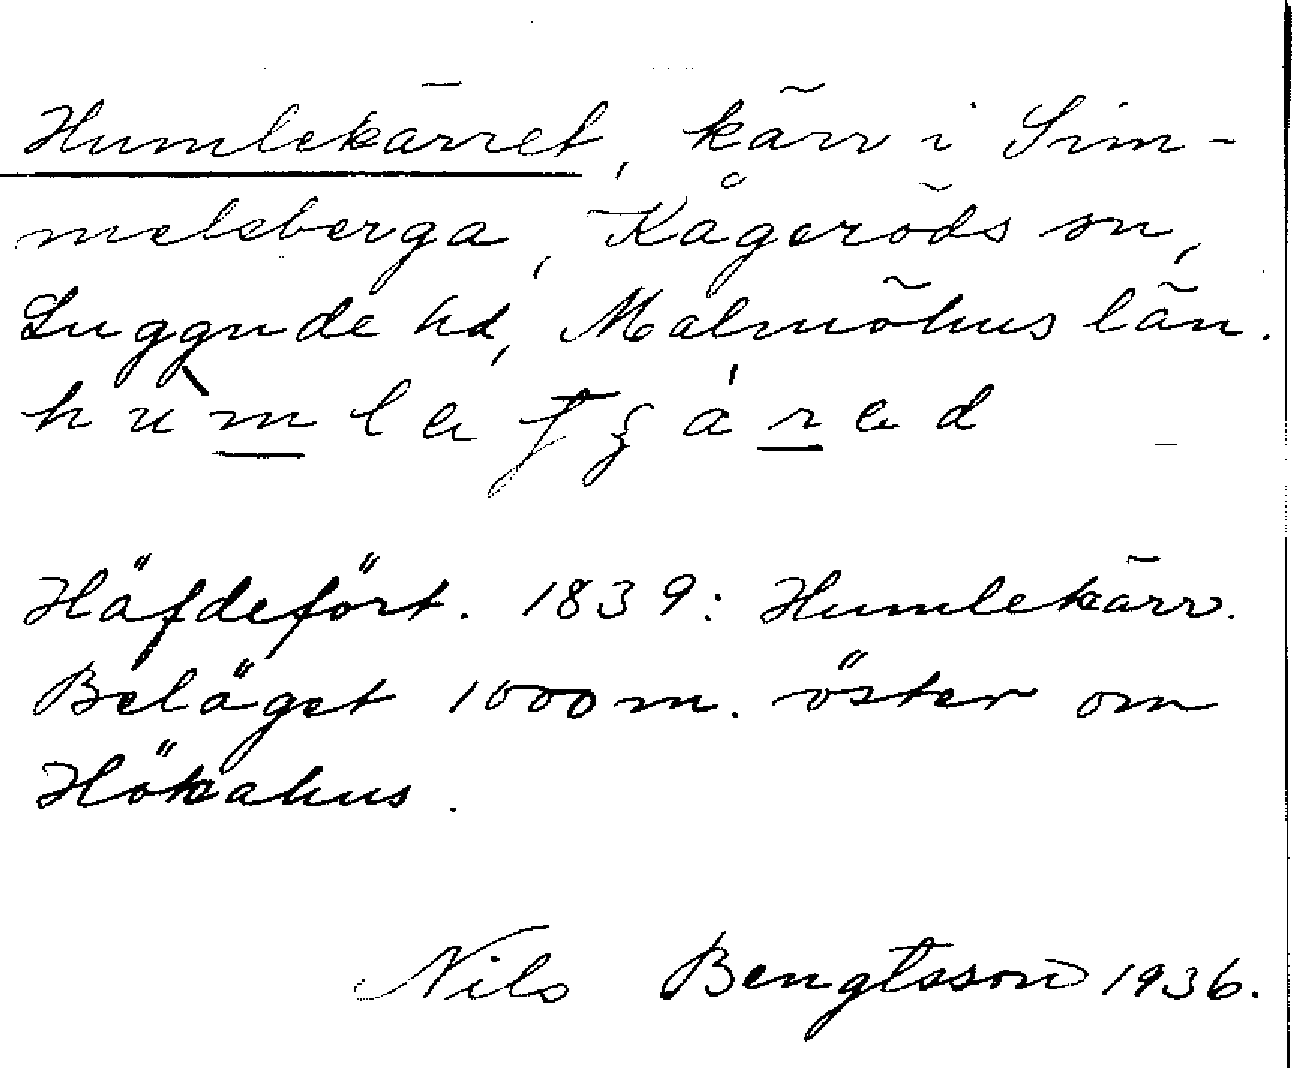 Humlekärret, kärr i Sim-
meleberga, Kågeröds sn,
Luggude hd, Malmöhus län.
Häfdefört. 1839: Humlekärr.
Beläget 1000 m. öster om
Hökahus.
Nils Bengtsson 1936.